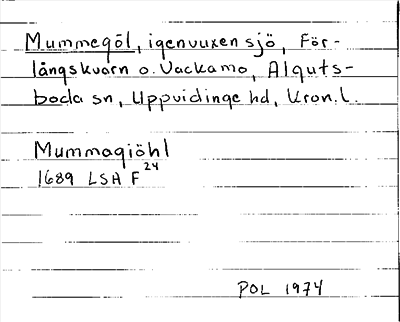 Mummegöl, igenvuxen sjö, För-
långskvarn o. Vackamo, Alguts-
boda sn, Uppvidinge hd, Kron.l.
Mummagiöhl
1689 LSA F 24
POL 1974